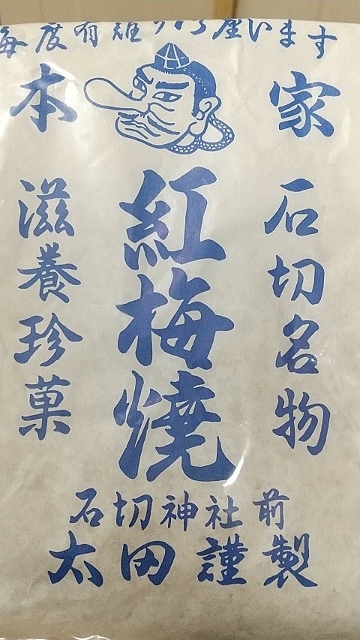 毎度有難うござ座います
本家
石切名物
紅梅焼
滋養珍菓
石切神社前
太田謹製